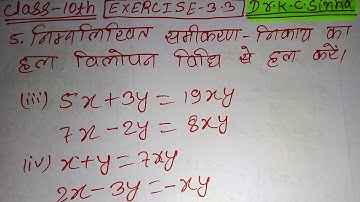 Class-10th EXERCISE-3.3 Dr.K.C.Sinha
5. निम्नलिखित समीकरण-निकाय का
हल विलोपन विधि से हल करें।
(iii) 5x+3y=19xy
7x-2y=8xy
(iv) x+y=7xy
2x-3y=-xy